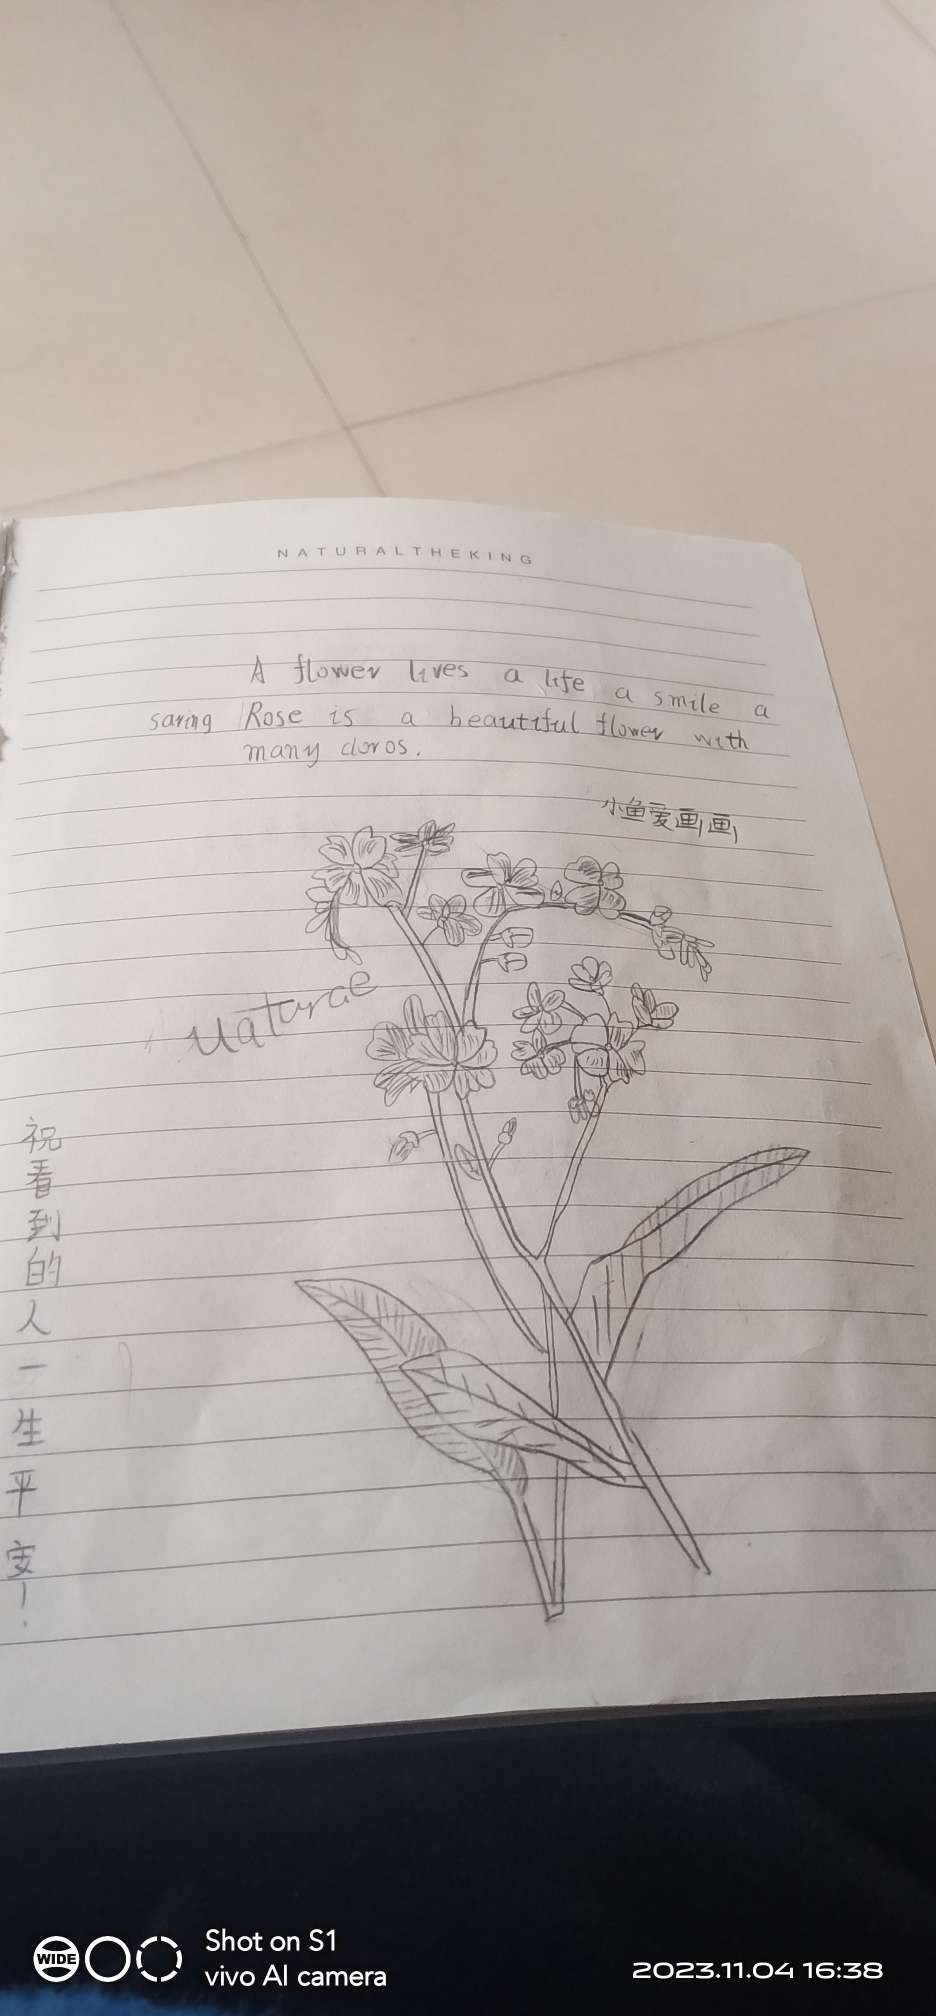 NATURALTHEKING
A flower lives a life a smile a
saring Rose is a beautiful flower with
many cloros.
小鱼爱画画
Naturae
祝看到的人一生平安!
WIDE
Shot on S1
vivo AI camera
2023.11.04 16:38